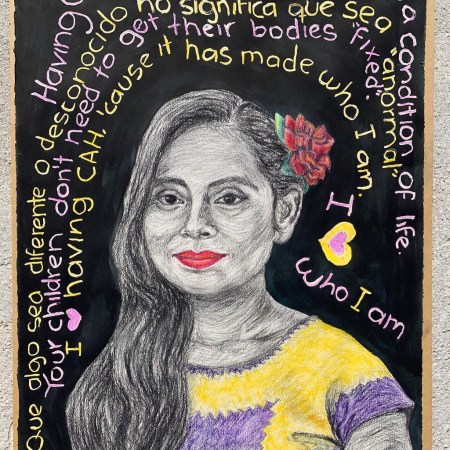 Having
a condition of life.
Que algo sea diferente o desconocido no significa que sea "anormal"
Your children don't need to get their bodies "fixed".
I ♥ having CAH, 'cause it has made who I am.
I ♥ who I am